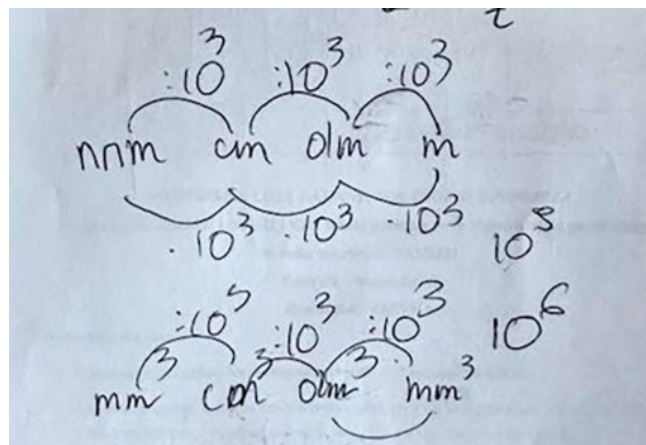 :10³ :10³ :10³
mm cm dm m
·10³ ·10³ ·10³
10³
:10³ :10³ :10³
10⁶
mm³ cm³ dm³ mm³